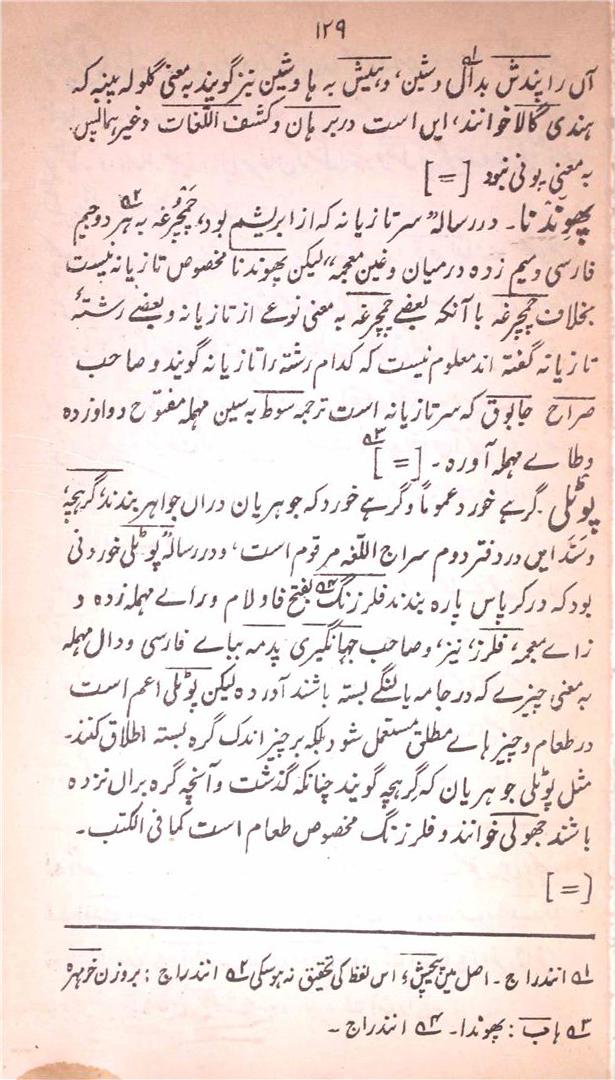 ۱۲۹
آں را پندش بدال و شین، و پیش به ہا و شین نیز گویند به معنی گلولہ پنبہ کہ
ہندی گالا خوانند، ایں است در برہان و کشف اللغات وغیرہما لیس
به معنی پونی نبود [=]
پھوندنا۔ در رسالہ "سر تازیانہ کہ از ابریشم بود، چمچرغہ به ہر دو جیم
فارسی و میم زدہ درمیان و غین معجمہ" لیکن پھوندنا مخصوص تازیانہ نیست
بخلاف چمچرغہ با آنکہ بعضے چمچرغہ به معنی نوعے از تازیانہ و بعضے رشتۂ
تازیانہ گفتہ اند معلوم نیست کہ کدام رشتہ را تازیانہ گویند و صاحب
صراح چابوق کہ سر تازیانہ است ترجمہ سوط به سین مہملہ مفتوح و واو زدہ
و طاے مہملہ آورہ۔ [=]
پوٹلی۔ گرہے خورد عموماً و گرہے خورد کہ جوہریان دراں جواہر بندند، گرہچہ،
و سند ایں در دفتر دوم سراج اللغہ مرقوم است، و در رسالہ "پوٹلی خوردنی
بود کہ در کرپاس پارہ بندند فلرزنگ بفتح فا و لام و راے مہملہ زدہ و
زاے معجمہ، فلرز، نیز، و صاحب جہانگیری پدمہ بباے فارسی و دال مہملہ
به معنی چیزے کہ در جامہ یا لنگے بستہ باشند آوردہ لیکن پوٹلی اعم است
در طعام و چیزہاے مطلق مستعمل شود بلکہ بر چیز اندک گرہ بستہ اطلاق کنند۔
مثل پوٹلی جوہریان کہ گرہچہ گویند چنانکہ گذشت و آنچہ گرہ براں نزدہ
باشند جھولی خوانند و فلرزنگ مخصوص طعام است کما فی الکتب۔
[=]
۱ انندراج۔ اصل میں پچپش، اس لفظ کی تحقیق نہ ہوسکی ۲ انندراج: بروزن خرمہرہ
۳ ہاب: پھوندا۔ ۴ انندراج۔